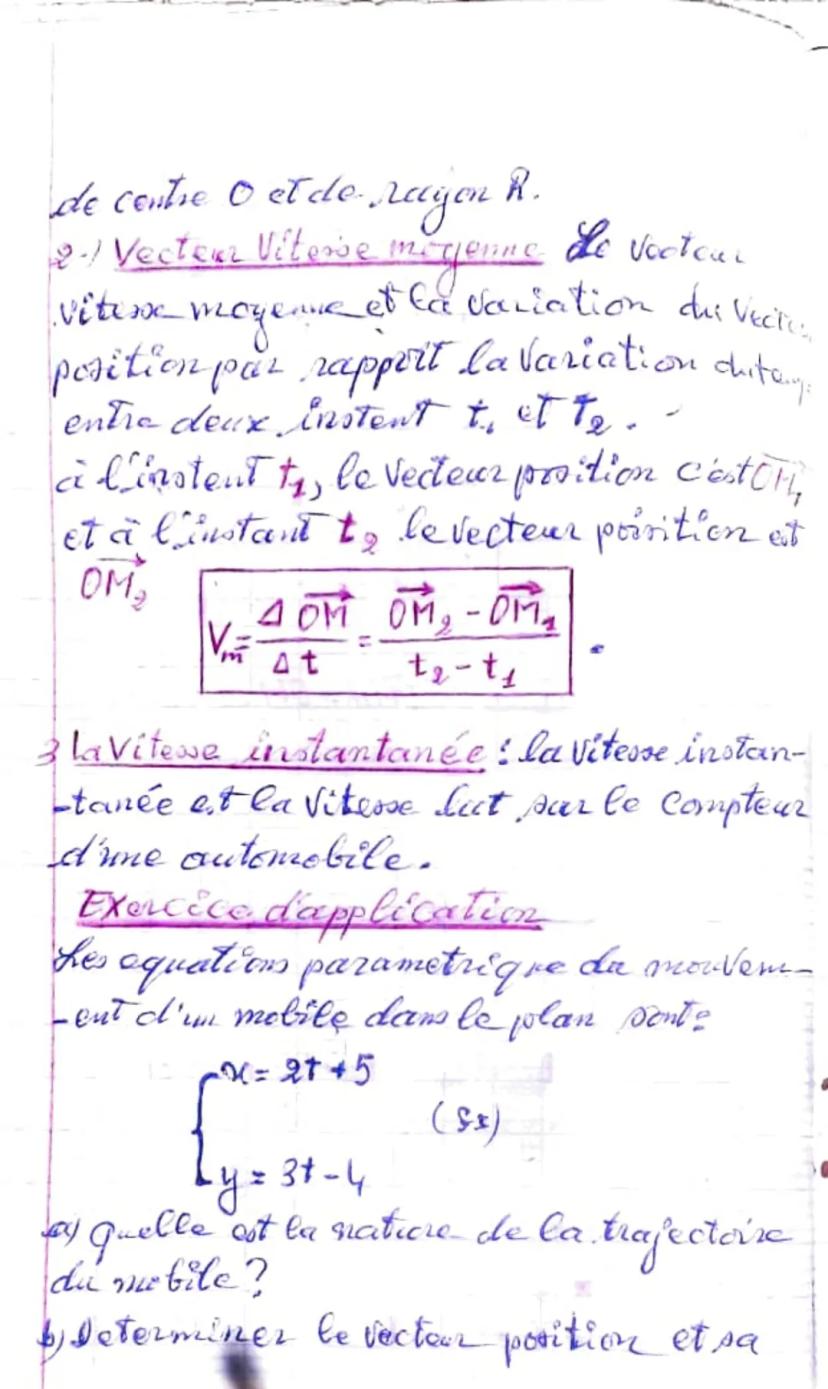 de centre O et de rayon R.
2-) Vecteur Vitesse moyenne Le vecteur
vitesse moyenne et la variation du Vecteu
position par rapport la Variation du temp
entre deux instent t1 et t2.
à l'instent t1, le vecteur position c'est OM1
et à l'instant t2 le vecteur poisition est
OM2
Vm = Δ OM / Δt = OM2 - OM1 / t2 - t1.
3 La Vitesse instantanée : la vitesse instan-
-tanée est la vitesse lut sur le compteur
d'une automobile.
Exercice d'application
Les equations parametrique du mouvem-
-ent d'un mobile dans le plan sont:
x = 2t + 5
(SI)
y = 3t - 4
a) quelle est la nature de la trajectoire
du mobile?
b) Determiner le vecteur position et sa